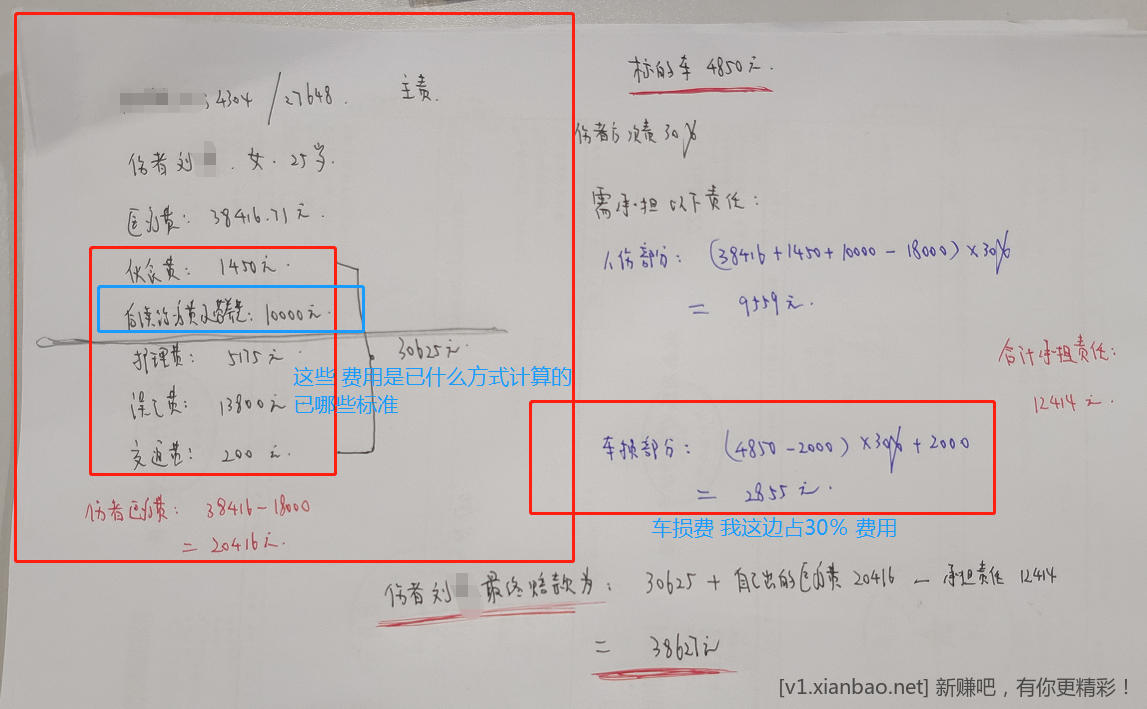 4304 / 27648. 主责.
伤者刘 . 女. 25岁.
医疗费: 38416.71元.
伙食费: 1450元.
后续治疗费及营养费: 10000元.
护理费: 5175元.
误工费: 13800元
交通费: 200元.
30625元.
这些 费用是已什么方式计算的
已哪些标准
伤者医疗费: 38416-18000
= 20416元.
标的车 4850元.
伤者占次责30%
需承担以下责任:
人伤部分: (38416+1450+10000-18000)×30%
= 9559元.
合计承担责任:
12414元.
车损部分: (4850-2000)×30%+2000
= 2855元.
车损费 我这边占30% 费用
伤者刘 最终赔款为: 30625 + 自己出的医疗费 20416 - 承担责任 12414
= 38627元
[v1.xianbao.net] 新赚吧，有你更精彩！